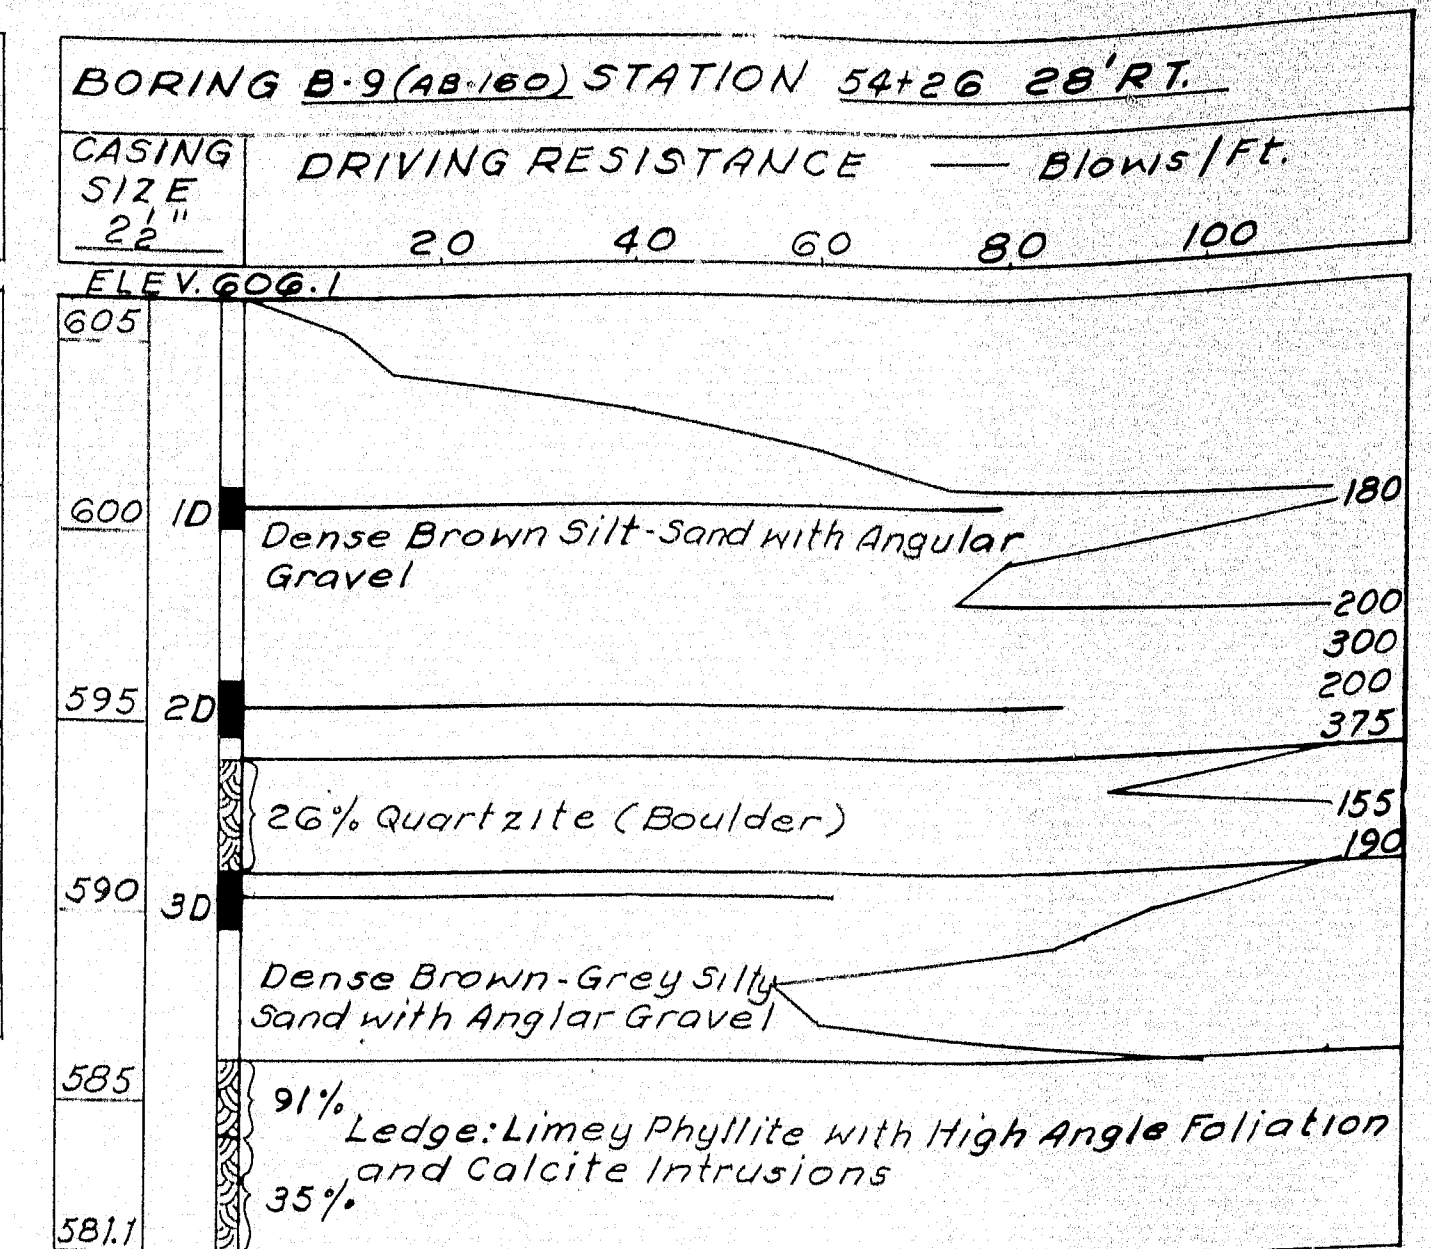 BORING B-9 (AB-160) STATION 54+26 28' RT.
CASING SIZE 2½"
DRIVING RESISTANCE — Blows/Ft.
20 40 60 80 100
ELEV. 606.1
605
180
600 1D
Dense Brown Silt-Sand with Angular
Gravel
200
300
200
595 2D
375
26% Quartzite (Boulder)
155
190
590 3D
Dense Brown-Grey Silty
Sand with Anglar Gravel
585
91%
Ledge: Limey Phyllite with High Angle Foliation
and Calcite Intrusions
35%
581.1